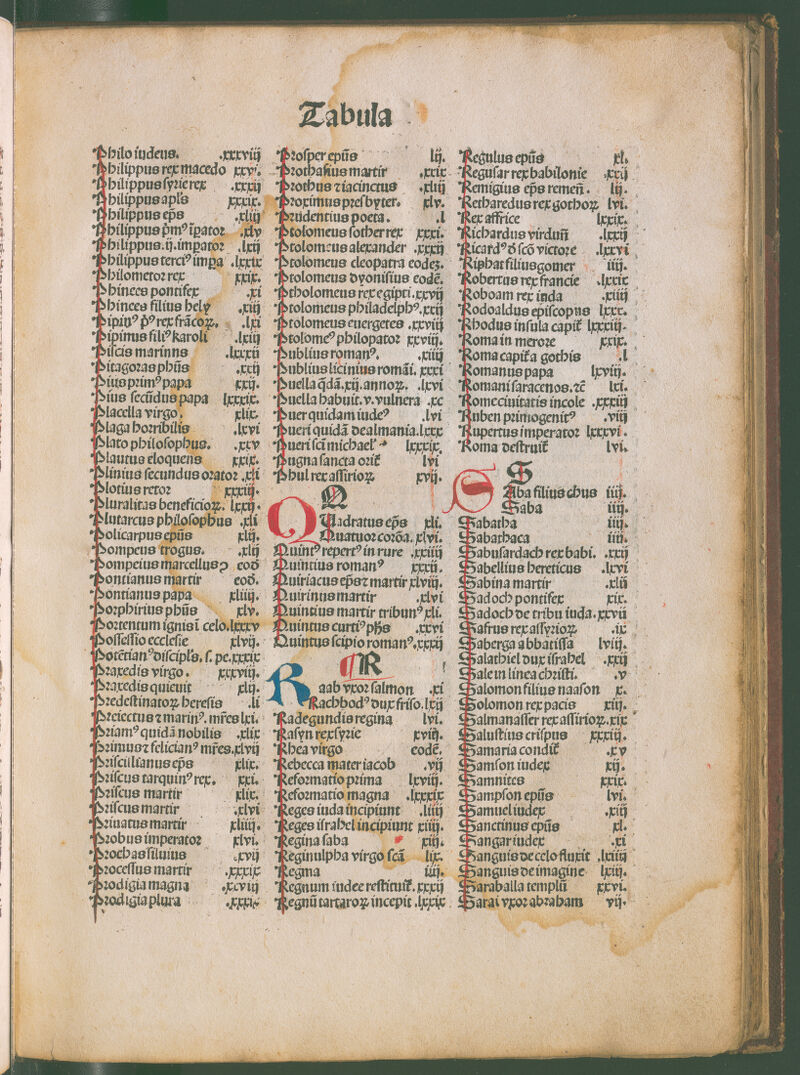 Tabula
Philo iudeus. .xxxviij
Philippus rex macedo xxvi.
Philippus syrie rex .xxxij
Philippus apl̄s xxxix.
Philippus ep̄s .xliij
Philippus p̄mꝰ īpator .xlv
Philippus .ij. impator .lxij
Philippus terciꝰ impa .lxxix
Philometor rex xxix.
Phinees pontifex .xi
Phinees filius hely .xiij
Pipinꝰ pꝰ rex frācoꝝ. .lxi
Pipinus filiꝰ karoli .lxiij
Piscis marinus .lxxxij
Pitagoras ph̄us .xxij
Pius primꝰ papa xxij.
Pius secūdus papa lxxxix.
Placella virgo. xlix.
Plaga horribilis .lxvi
Plato philosophus. .xxv
Plautus eloquens xxix.
Plinius secundus orator .xli
Plotius retor xxxiij.
Pluralitas beneficioꝝ. lxxj.
Plutarcus philosophus .xli
Policarpus ep̄us xlij.
Pompeus trogus. .xlij
Pompeius marcellusꝰ eod
Pontianus martir eod.
Pontianus papa xliiij.
Porphirius ph̄us xlv.
Portentum ignis ī celo .lxxxv
Possessio ecclesie xlvij.
Potētianꝰ discipl̄s. s. pe. xxxix
Praxedis virgo. xxxviij.
Praxedis quieuit xlij.
Predestinatoꝝ heresis .li
Preiectus ⁊ marinꝰ. mr̄es lxi.
Priamꝰ quidā nobilis .xlix
Primus ⁊ felicianꝰ mr̄es. xlvij
Priscillianus ep̄s xlix.
Priscus tarquinꝰ rex. xxi.
Priscus martir xlix.
Priscus martir .xlvi
Priuatus martir xliiij.
Probus imperator xlvi.
Prochas siluius .xvij
Processus martir .xxxix
Prodigia magna .xcviij
Prodigia plura .xxxix
Prosper ep̄us lij.
Prothasius martir .xxix
Prothus ⁊ iacinctus .xliij
Proximus presbyter. xlv.
Prudentius poeta. .l
Ptolomeus sother rex xxxi.
Ptolomeus alexander .xxxij
Ptolomeus cleopatra eodeꝫ.
Ptolomeus dyonisius eodē.
Ptholomeus rex egipti. xxvij
Ptolomeus philadelphꝰ. xxij
Ptolomeus euergetes .xxviij
Ptolomeꝰ philopator xxviij.
Publius romanꝰ. .xiiij
Publius licinius romāi. xxxi
Puella q̄dā. xij. annoꝝ. .lxvi
Puella habuit. v. vulnera .xc
Puer quidam iudeꝰ .lvi
Pueri quidā de almania. lxxx
Pueri sc̄i michael lxxxix.
Pugna sancta orit̄ lvi
Phul rex assirioꝝ xvij.
Q
Quadratus ep̄s xli.
Quatuor corōa. xlvi.
Quintꝰ repertꝰ in rure .xxiiij
Quintius romanꝰ xxxij.
Quiriacus ep̄s ⁊ martir xlviij.
Quirinus martir .xlvi
Quintius martir tribunꝰ xli.
Quintus curtiꝰ ph̄s .xxvi
Quintus scipio romanꝰ. xxxij
R
Raab vxor salmon .xi
Rachbodꝰ dux friso. lxij
Radegundis regina lvi.
Rasyn rex syrie xviij.
Rhea virgo eodē.
Rebecca mater iacob .vij
Reformatio prima lxviij.
Reformatio magna .lxxxix
Reges iuda incipiunt .liiij
Reges israhel incipiunt xiiij.
Regina saba xiij.
Reginulpha virgo scā lix.
Regma iiij.
Regnum iudee restituit̄. xxxij
Regnū tartaroꝝ incepit .lxxix
Regulus ep̄us xl.
Regusar rex babilonie .xxij
Remigius ep̄s remeñ. lij.
Retharedus rex gothoꝝ lvi.
Rex affrice lxxix.
Richardus virduñ .lxxij
Ricardꝰ d̄ scō victore .lxxvi
Riphat filius gomer iiij.
Robertus rex francie .lxxix
Roboam rex iuda .xiiij
Rodoaldus episcopus lxxx.
Rhodus insula capit̄ lxxxiij.
Roma in merore xxix.
Roma capit̄a gothis .l
Romanus papa lxviij.
Romani saracenos. ⁊c̄ lxi.
Rome ciuitatis incole .xxxiij
Ruben primogenitꝰ .viij
Rupertus imperator lxxxvi.
Roma destruit̄ lvi.
S
Saba filius chus iiij.
Saba iiij.
Sabatha iiij.
Sabathaca iiij.
Sabusardach rex babi. .xxij
Sabellius hereticus .lxvi
Sabina martir .xlij
Sadoch pontifex xix.
Sadoch de tribu iuda. xxvij
Safrus rex assyrioꝝ .ix
Saberga abbatissa lviij.
Salathiel dux israhel .xxij
Sale in linea christi. .v
Salomon filius naason x.
Solomon rex pacis xiij.
Salmanasser rex assirioꝝ. xix
Salustius crispus xxxiij.
Samaria condit̄ .xv
Samson iudex xij.
Samnites xxix.
Sampson ep̄us lvi.
Samuel iudex .xiij
Sanctinus ep̄us xl.
Sangar iudex .xi
Sanguis de celo fluxit .lxiiij
Sanguis de imagine lxiij.
Saraballa templū xxvi.
Sarai vxor abraham vij.